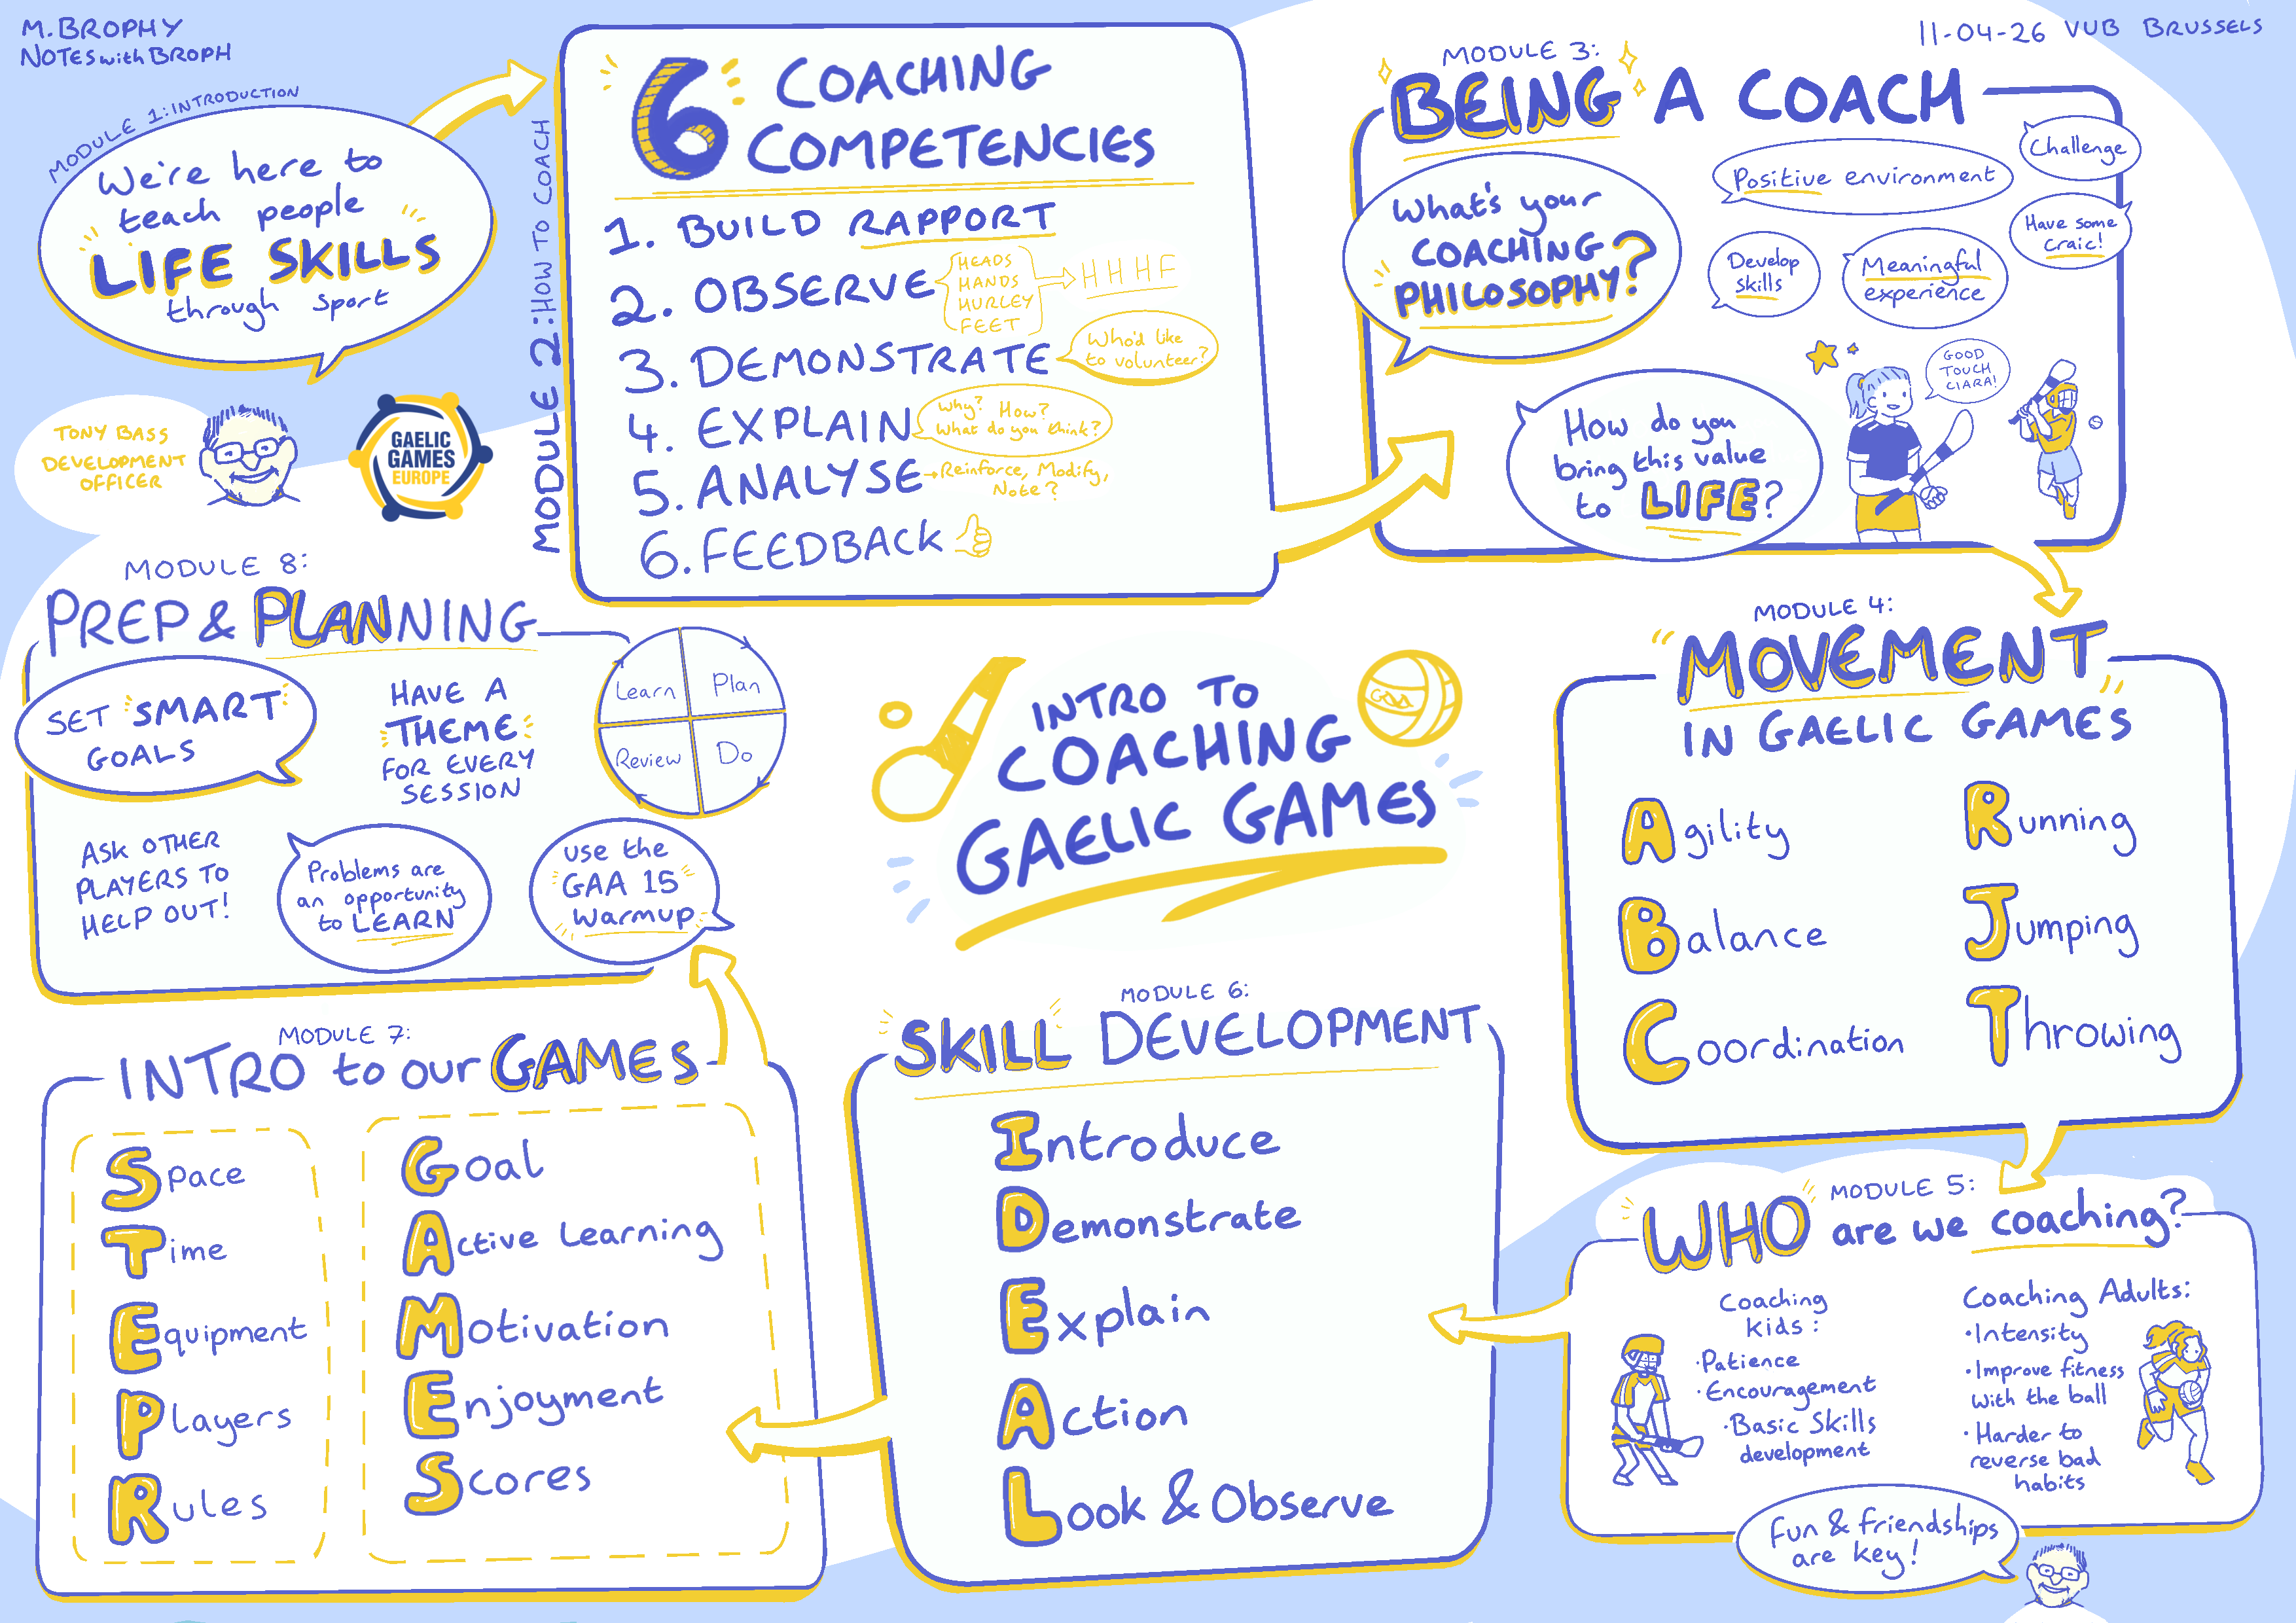 M. BROPHY
NOTES with BROPH
11-04-26 VUB BRUSSELS
MODULE 1: INTRODUCTION
We're here to
teach people
LIFE SKILLS
through sport
TONY BASS
DEVELOPMENT
OFFICER
GAELIC
GAMES
EUROPE
MODULE 2: HOW TO COACH
6 COACHING
COMPETENCIES
1. BUILD RAPPORT
2. OBSERVE
HEADS
HANDS
HURLEY
FEET
HHHF
3. DEMONSTRATE
Who'd like
to volunteer?
4. EXPLAIN
Why? How?
What do you think?
5. ANALYSE → Reinforce, Modify,
Note?
6. FEEDBACK
MODULE 3:
BEING A COACH
What's your
COACHING
PHILOSOPHY?
Positive environment
Challenge
Have some
Craic!
Develop
skills
Meaningful
experience
How do you
bring this value
to LIFE?
GOOD
TOUCH
CIARA!
INTRO TO
COACHING
GAELIC GAMES
GAA
MODULE 4:
MOVEMENT
IN GAELIC GAMES
Agility
Balance
Coordination
Running
Jumping
Throwing
MODULE 5:
WHO are we coaching?
Coaching
kids:
·Patience
·Encouragement
·Basic Skills
development
Coaching Adults:
·Intensity
·Improve fitness
with the ball
·Harder to
reverse bad
habits
Fun & friendships
are key!
MODULE 6:
SKILL DEVELOPMENT
Introduce
Demonstrate
Explain
Action
Look & Observe
MODULE 7:
INTRO to our GAMES
Space
Time
Equipment
Players
Rules
Goal
Active Learning
Motivation
Enjoyment
Scores
MODULE 8:
PREP & PLANNING
SET SMART
GOALS
HAVE A
THEME
FOR EVERY
SESSION
Learn
Plan
Review
Do
ASK OTHER
PLAYERS TO
HELP OUT!
Problems are
an opportunity
to LEARN
use the
GAA 15
Warmup